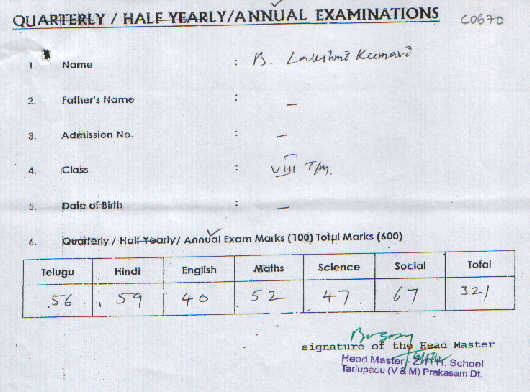 QUARTERLY / HALF YEARLY/ANNUAL EXAMINATIONS C0670
1. Name : B. Lakshmi Kumari
2. Father's Name : —
3. Admission No. : —
4. Class : VIII T/M.
5. Date of Birth : —
6. Quarterly / Half Yearly/ Annual Exam Marks (100) Total Marks (600)
Telugu Hindi English Maths Science Social Total
56 59 40 52 47 67 321
signature of the Head Master
Head Master, Z.P.H. School
Tarlupadu (V & M) Prakasam Dt.